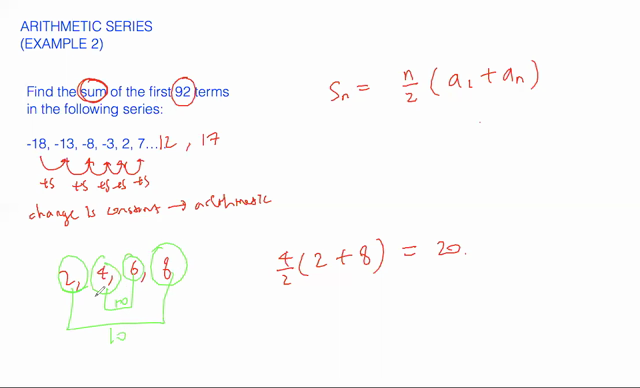 ARITHMETIC SERIES
(EXAMPLE 2)
Find the sum of the first 92 terms
in the following series:
-18, -13, -8, -3, 2, 7... 12, 17
+5 +5 +5 +5 +5
change is constant → arithmetic
Sn = n/2 (a1 + an)
2, 4, 6, 8
10
10
4/2 (2 + 8) = 20.